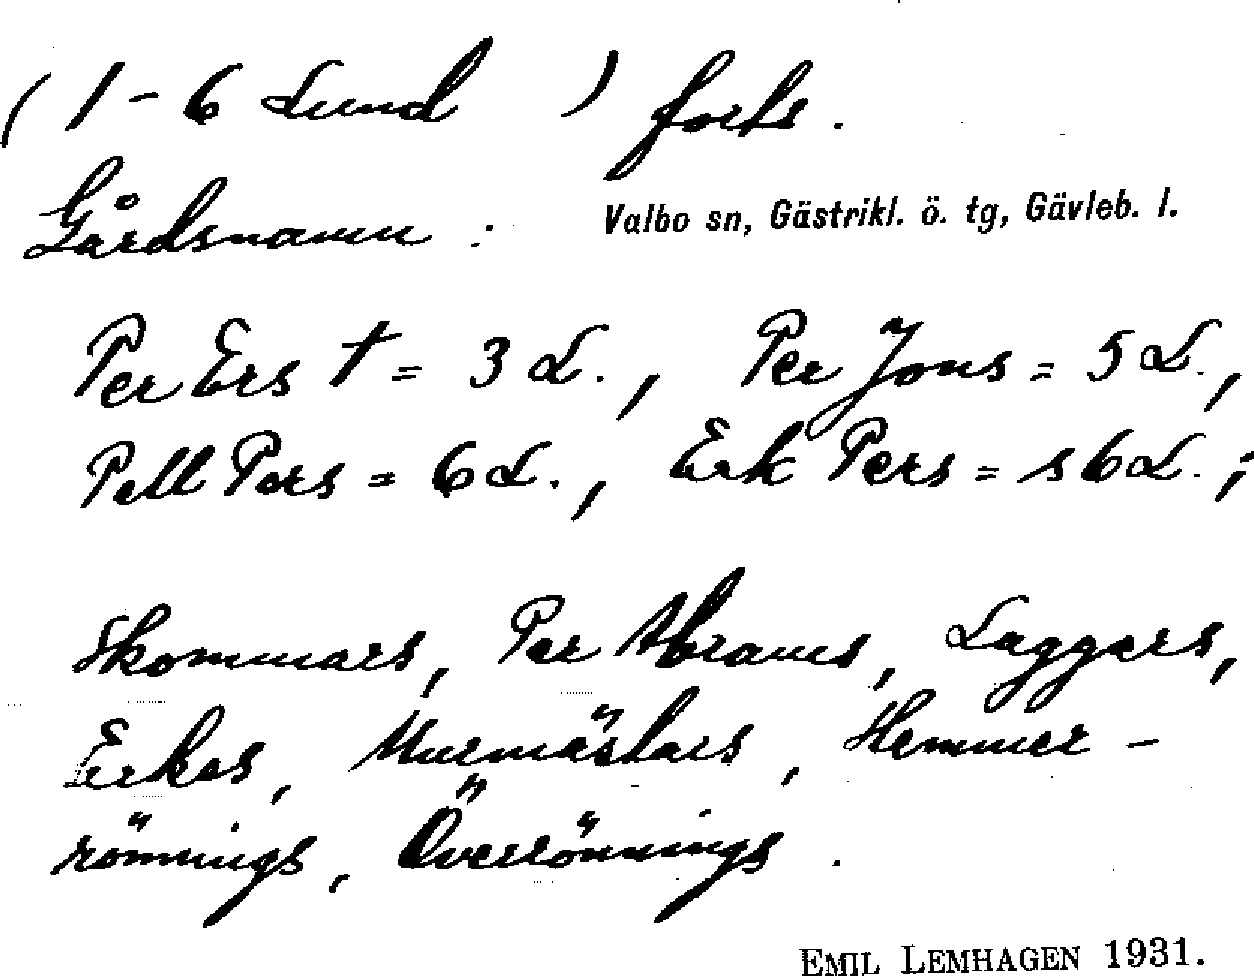 ( 1 - 6 Lund ) forts.
Gårdsnamn :
Valbo sn, Gästrikl. ö. tg, Gävleb. l.
Per Ers † = 3 L., Per Jons = 5 L.,
Pell Pers = 6 L., Erk Pers = s 6 L. ;
Skommars, Per Abrams, Laggers,
Erkes, Murmästars, Hemmer -
rönnings, Överrönnings.
EMIL LEMHAGEN 1931.